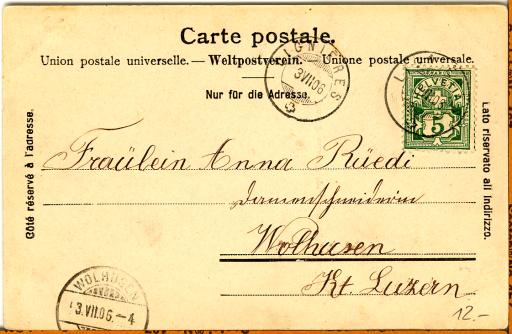 Carte postale.
Union postale universelle. — Weltpostverein. — Unione postale universale.
Nur für die Adresse.
LIGNIÈRES
3.VII.06
HELVETIA
5
Côté réservé à l'adresse.
Lato riservato all indirizzo.
Fräulein Anna Rüedi
Damenschneiderin
Wolhusen
Kt. Luzern
WOLHUSEN
3.VII.06.-4
12.-